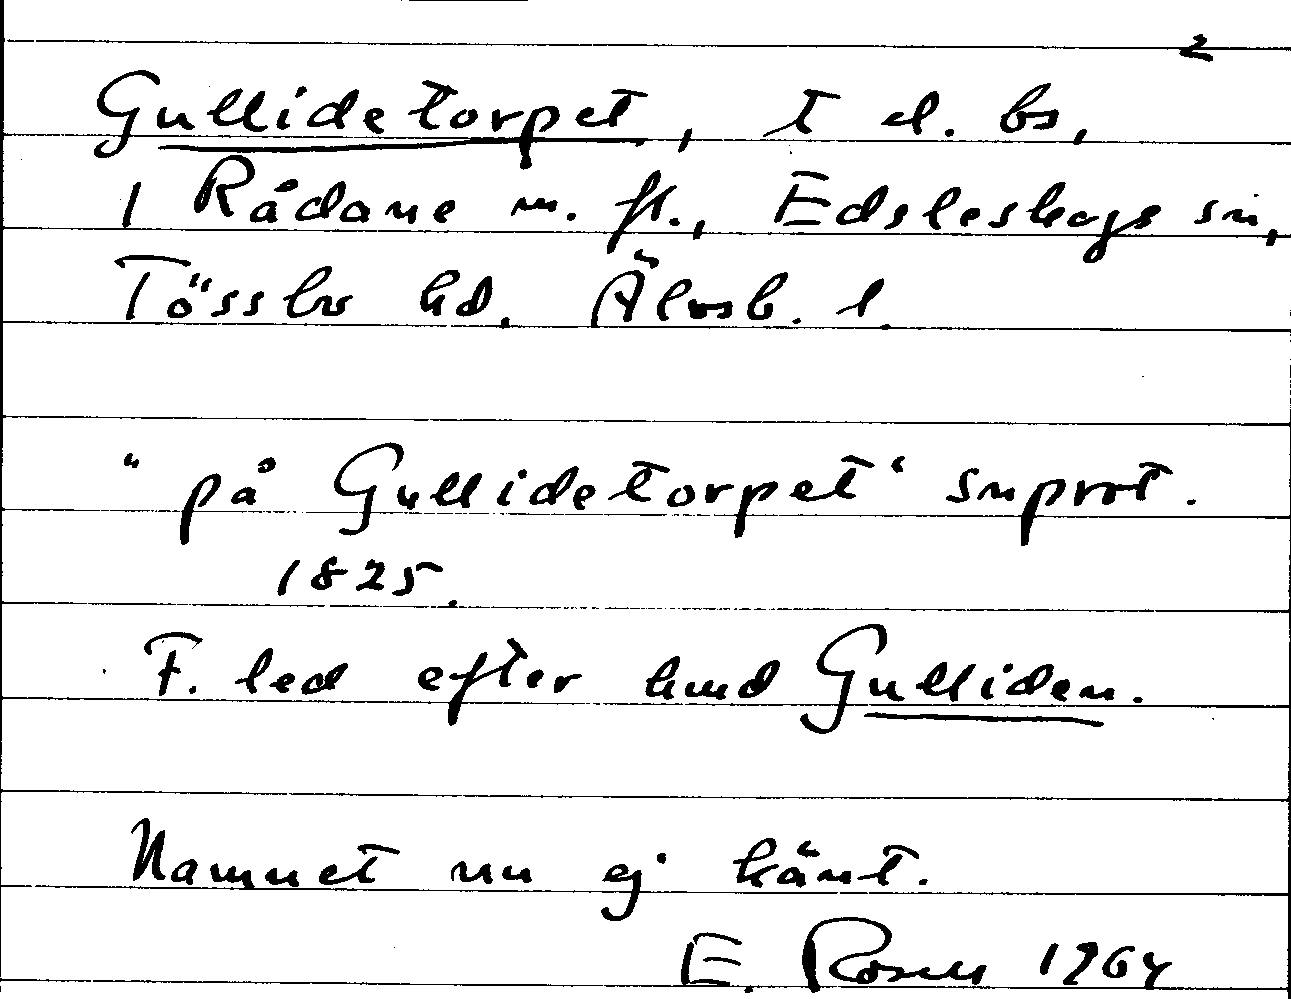 2
Gullidetorpet, t el. bs,
1 Rådane m. fl., Edsleskogs sn,
Tössbo hd. Älvsb. l.
"på Gullidetorpet" snprot.
1825.
F. led efter hmd Gulliden.
Namnet nu ej känt.
E. Rosell 1964